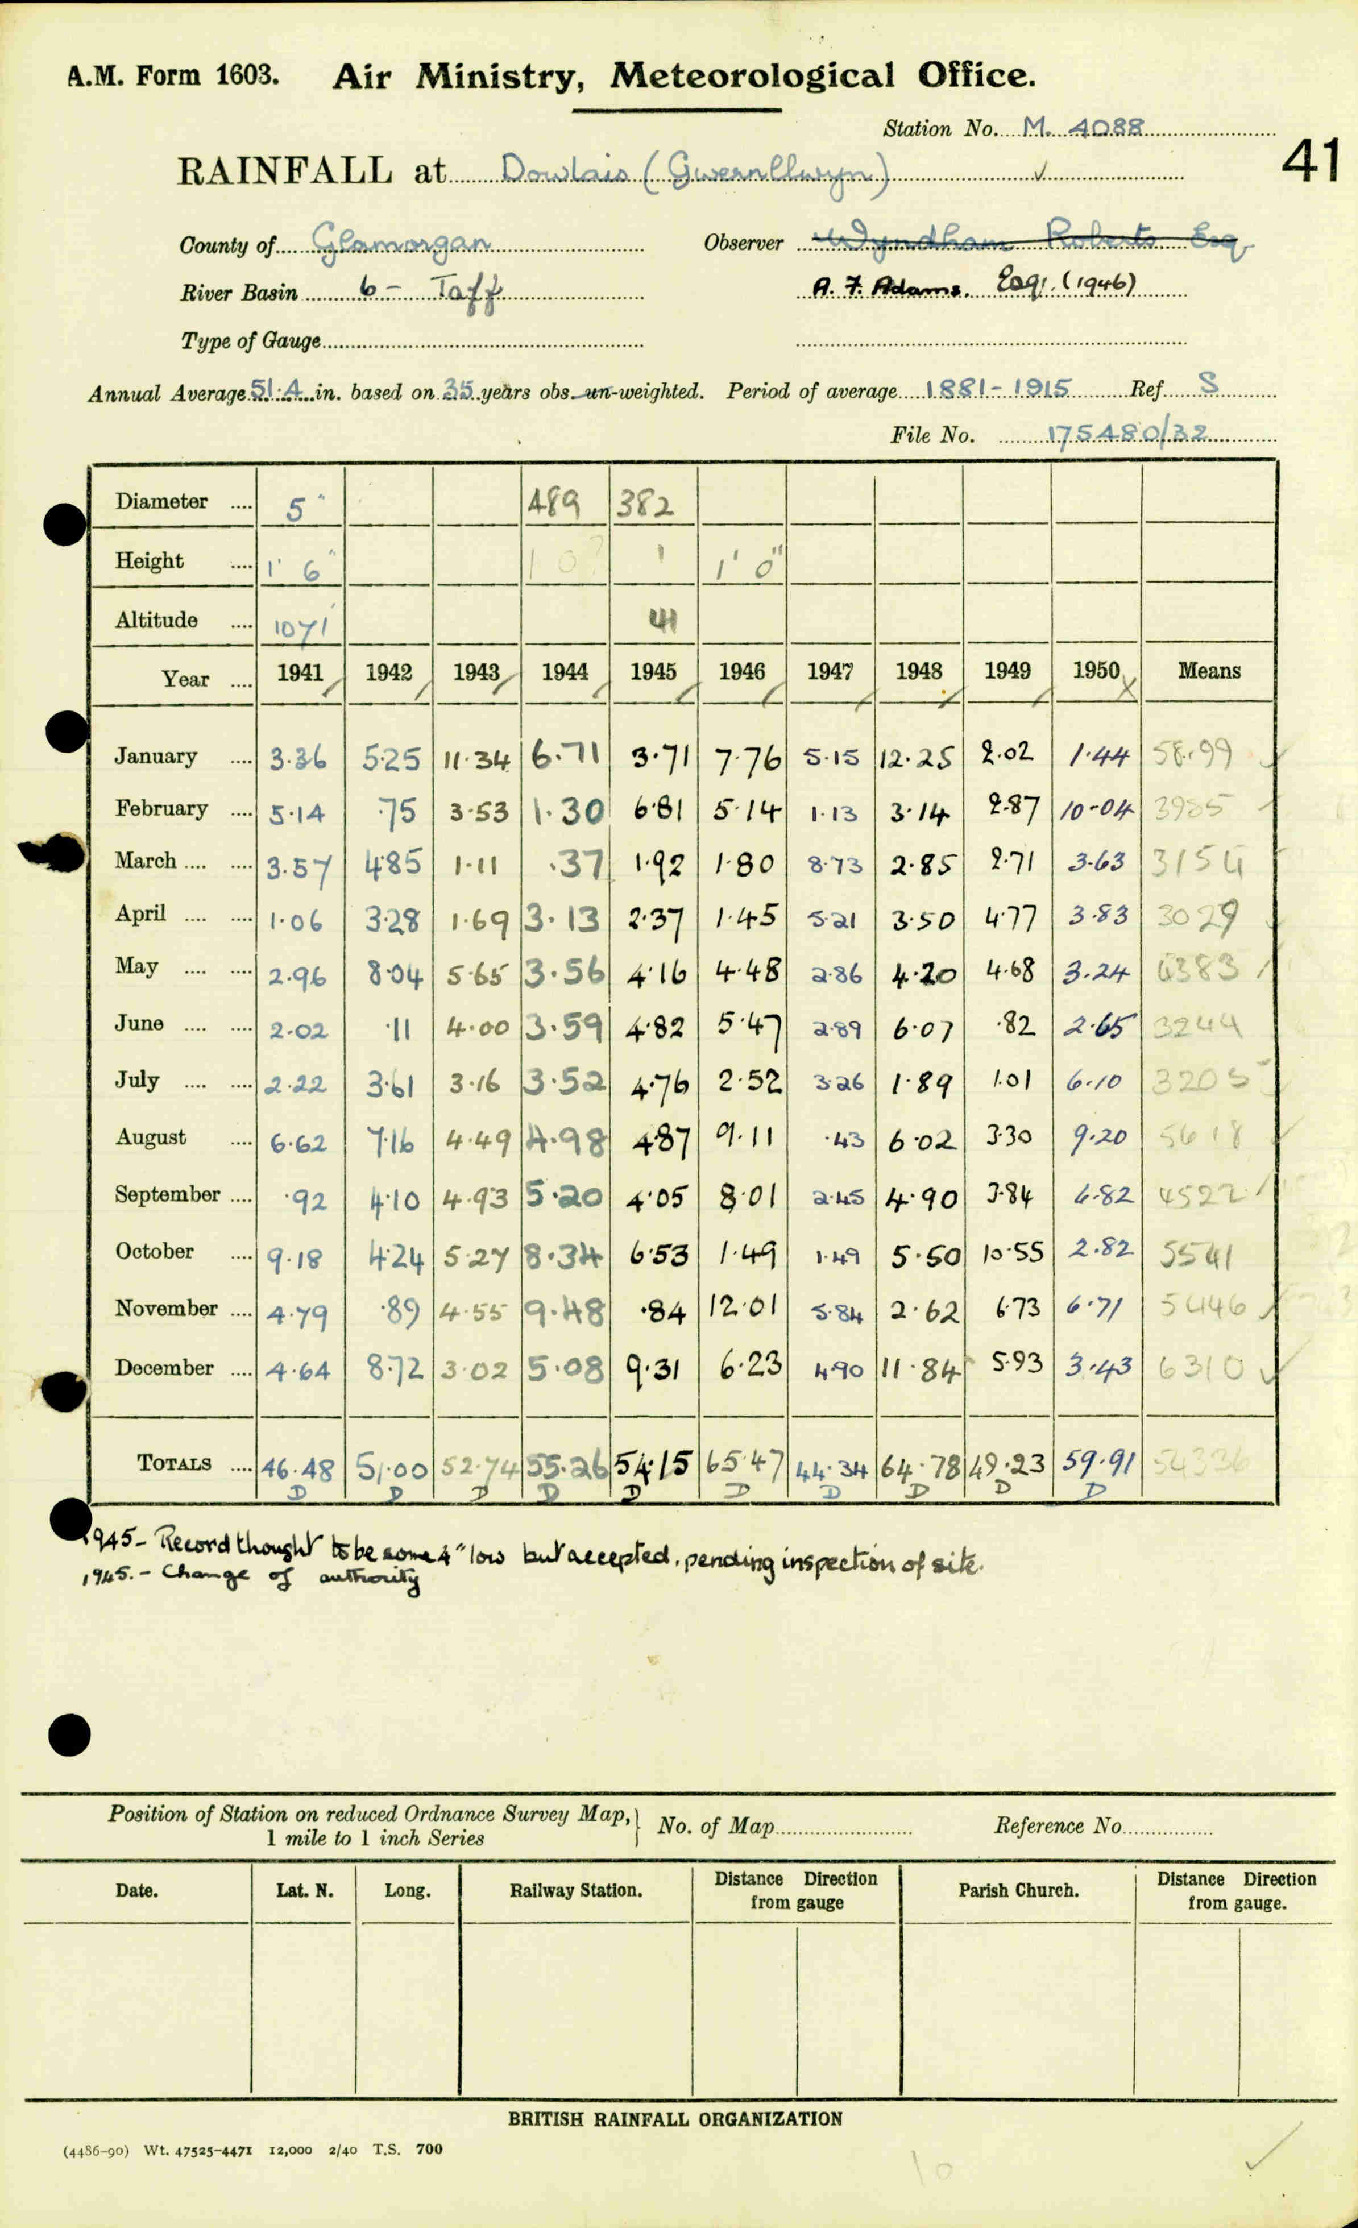 A.M. Form 1603. Air Ministry, Meteorological Office.
Station No. M. 4088
41
RAINFALL at Dowlais (Gwernllwyn) ✓
County of Glamorgan Observer Wyndham Roberts Esq.
River Basin 6 - Taff A. F. Adams. Esq. (1946)
Type of Gauge
Annual Average 51.4 in. based on 35 years obs. un-weighted. Period of average 1881-1915 Ref. S
File No. 175480/32
Diameter .... 5" 489 382
Height .... 1' 6" 1 0? 1 1' 0"
Altitude .... 1071' 41
Year .... 1941 1942 1943 1944 1945 1946 1947 1948 1949 1950 Means
January .... 3.36 5.25 11.34 6.71 3.71 7.76 5.15 12.25 2.02 1.44 58.99
February .... 5.14 .75 3.53 1.30 6.81 5.14 1.13 3.14 2.87 10.04 3985
March .... .... 3.57 4.85 1.11 .37 1.92 1.80 8.73 2.85 2.71 3.63 3154
April .... .... 1.06 3.28 1.69 3.13 2.37 1.45 5.21 3.50 4.77 3.83 3029
May .... .... 2.96 8.04 5.65 3.56 4.16 4.48 2.86 4.20 4.68 3.24 4383
June .... .... 2.02 .11 4.00 3.59 4.82 5.47 2.89 6.07 .82 2.65 3244
July .... .... 2.22 3.61 3.16 3.52 4.76 2.52 3.26 1.89 1.01 6.10 3205
August .... 6.62 7.16 4.49 4.98 4.87 9.11 .43 6.02 3.30 9.20 5618
September .... .92 4.10 4.93 5.20 4.05 8.01 2.45 4.90 3.84 6.82 4522
October .... 9.18 4.24 5.27 8.34 6.53 1.49 1.49 5.50 10.55 2.82 5541
November .... 4.79 .89 4.55 9.48 .84 12.01 5.84 2.62 6.73 6.71 5446
December .... 4.64 8.72 3.02 5.08 9.31 6.23 4.90 11.84 5.93 3.43 6310
TOTALS .... 46.48 51.00 52.74 55.26 54.15 65.47 44.34 64.78 49.23 59.91 54336
D D D D D D D D D D
1945 - Record thought to be some 4" low but accepted, pending inspection of site.
1945. - Change of authority
Position of Station on reduced Ordnance Survey Map, No. of Map Reference No.
1 mile to 1 inch Series
Date. Lat. N. Long. Railway Station. Distance Direction from gauge Parish Church. Distance Direction from gauge.
BRITISH RAINFALL ORGANIZATION
(4486-90) Wt. 47525-4471 12,000 2/40 T.S. 700
10